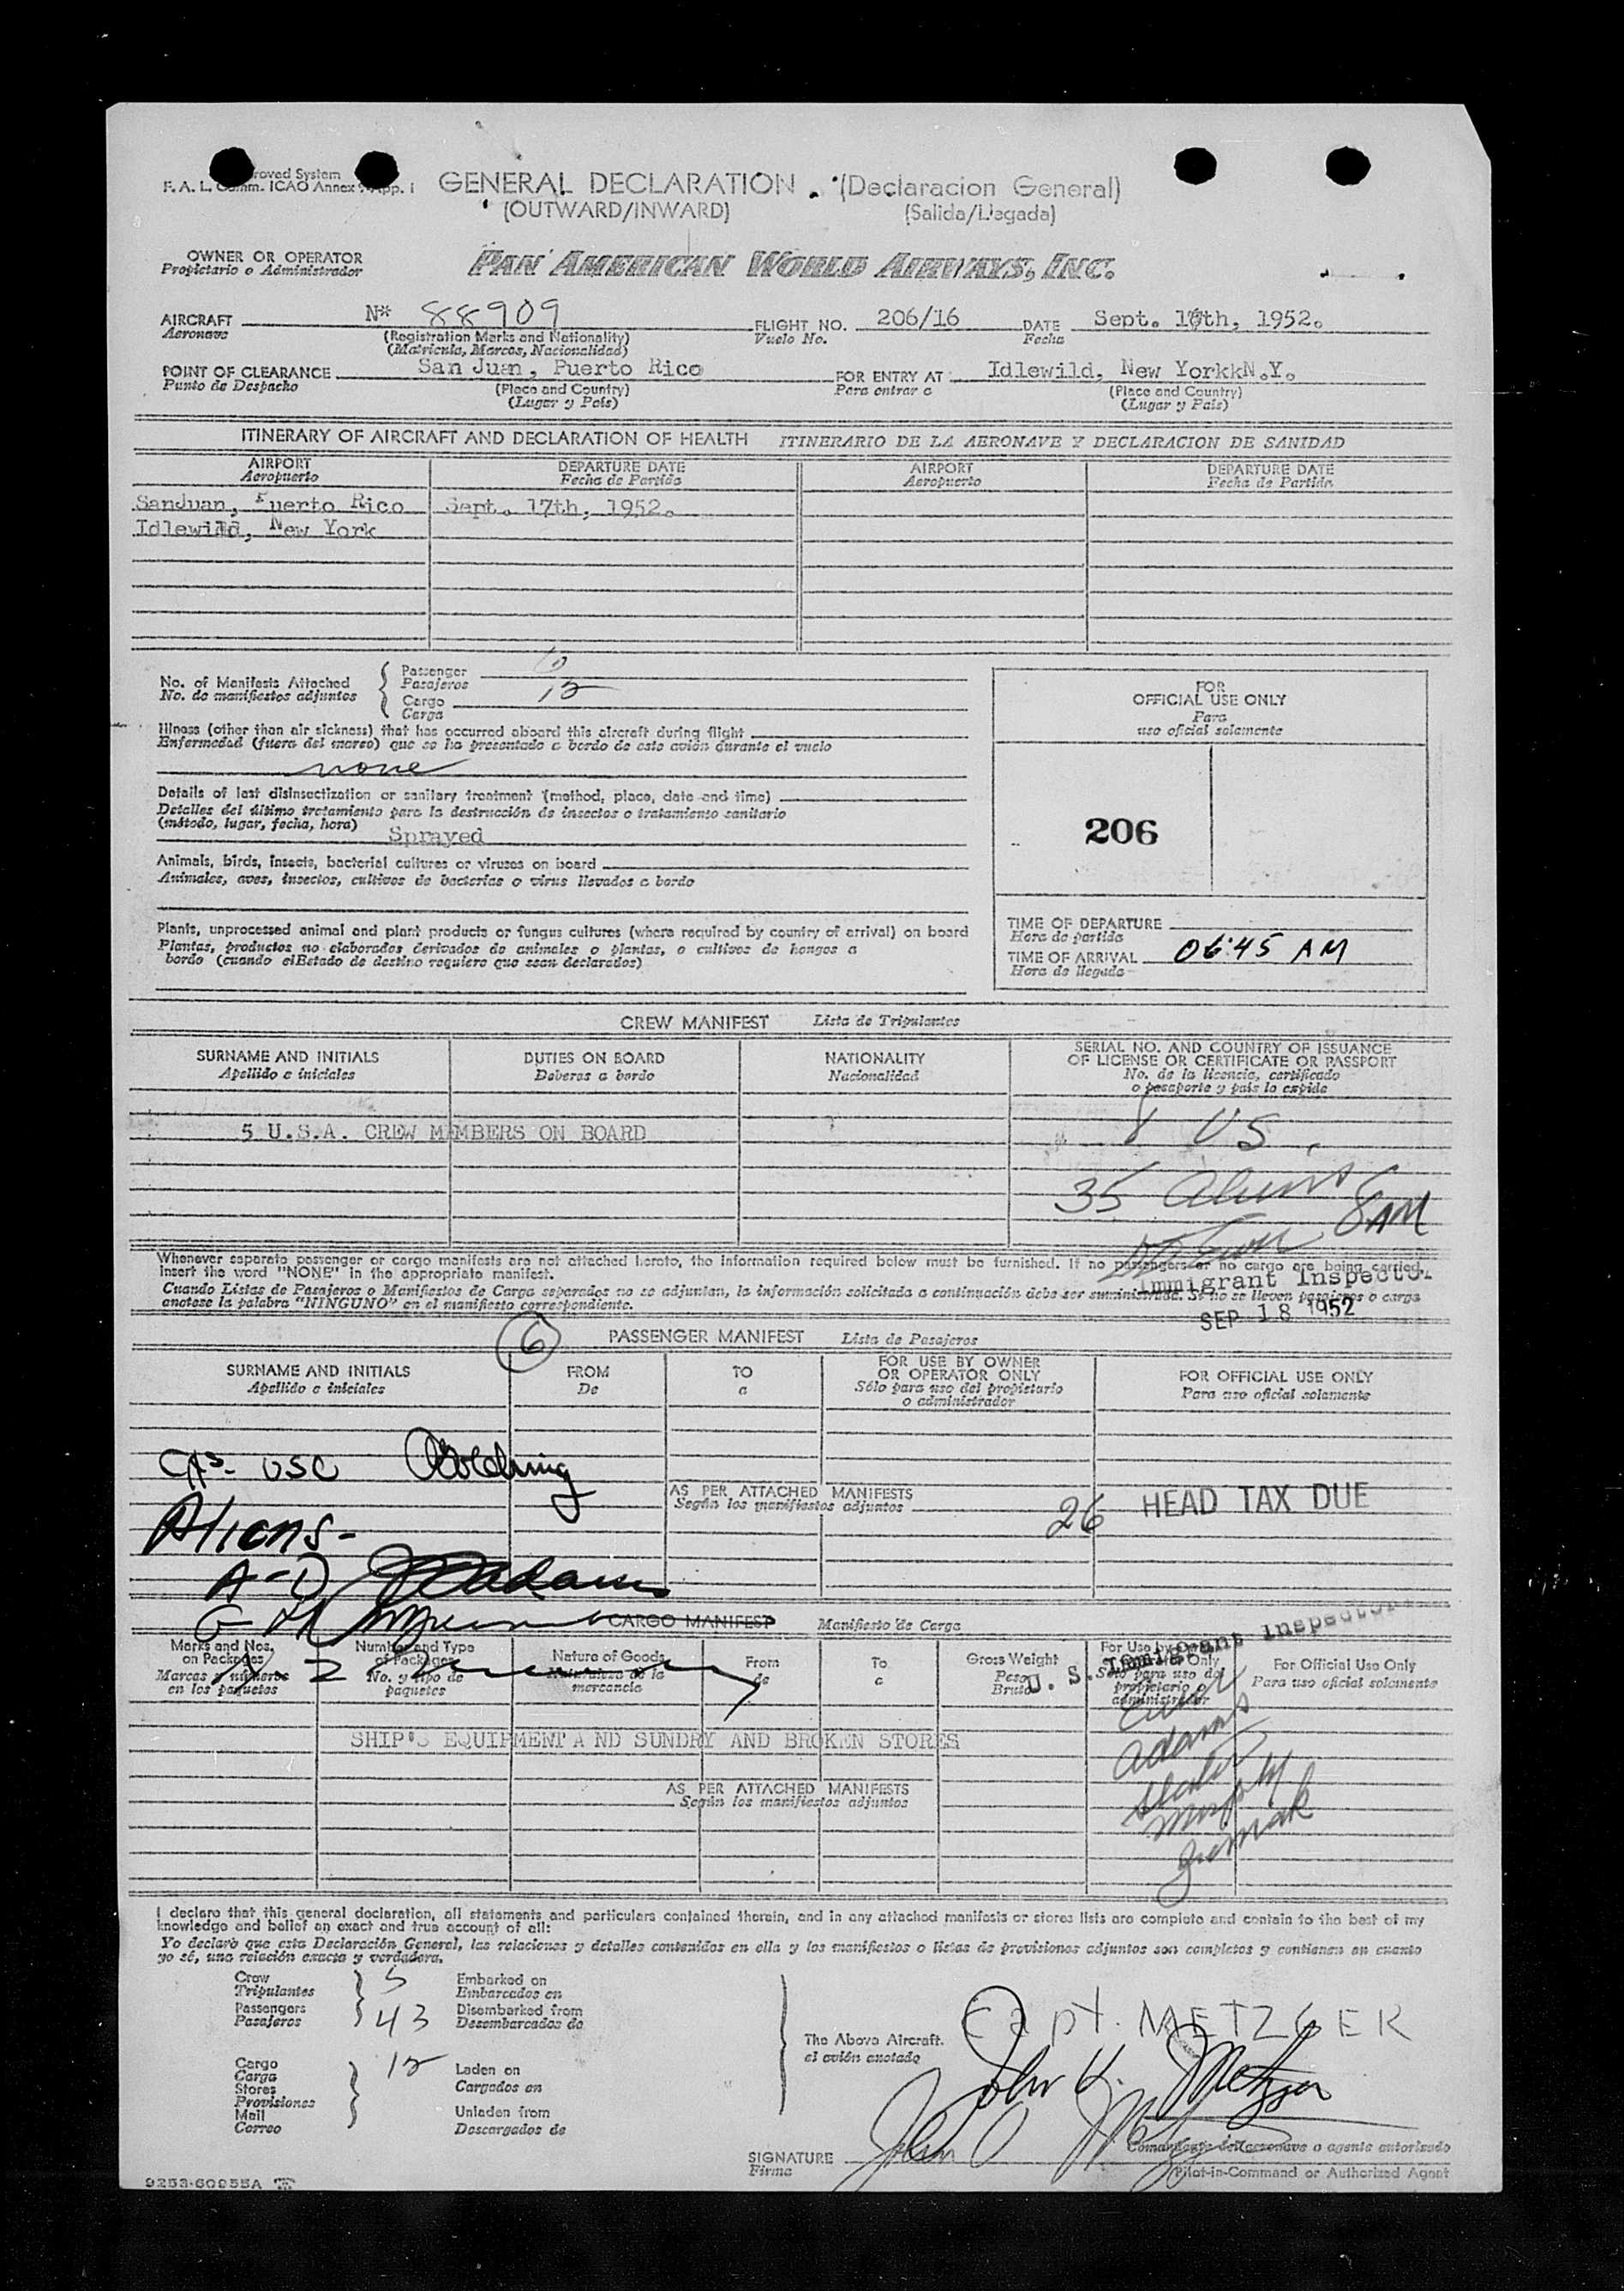 roved System
F. A. L. Comm. ICAO Annex 9 App. 1
GENERAL DECLARATION (Declaracion General)
(OUTWARD/INWARD) (Salida/Llegada)
OWNER OR OPERATOR
Propietario o Administrador
PAN AMERICAN WORLD AIRWAYS, INC.
AIRCRAFT N* 88909 FLIGHT NO. 206/16 DATE Sept. 18th, 1952.
Aeronave (Registration Marks and Nationality) Vuelo No. Fecha
(Matricula, Marcas, Nacionalidad)
POINT OF CLEARANCE San Juan, Puerto Rico FOR ENTRY AT Idlewild, New YorkkN.Y.
Punto de Despacho (Place and Country) Para entrar a (Place and Country)
(Lugar y Pais) (Lugar y Pais)
ITINERARY OF AIRCRAFT AND DECLARATION OF HEALTH ITINERARIO DE LA AERONAVE Y DECLARACION DE SANIDAD
AIRPORT DEPARTURE DATE AIRPORT DEPARTURE DATE
Aeropuerto Fecha de Partida Aeropuerto Fecha de Partida
SanJuan, Puerto Rico Sept. 17th, 1952.
Idlewild, New York
No. of Manifests Attached
No. de manifiestos adjuntos
Passenger
Pasajeros
Cargo 12
Carga
Illness (other than air sickness) that has occurred aboard this aircraft during flight
Enfermedad (fuera del mareo) que se ha presentado a bordo de este avión durante el vuelo
none
Details of last disinsectization or sanitary treatment (method, place, date and time)
Detalles del último tratamiento para la destrucción de insectos o tratamiento sanitario
(método, lugar, fecha, hora) Sprayed
Animals, birds, insects, bacterial cultures or viruses on board
Animales, aves, insectos, cultivos de bacterias o virus llevados a bordo
Plants, unprocessed animal and plant products or fungus cultures (where required by country of arrival) on board
Plantas, productos no elaborados derivados de animales o plantas, o cultivos de hongos a
bordo (cuando el Estado de destino requiere que sean declarados)
FOR
OFFICIAL USE ONLY
Para
uso oficial solamente
206
TIME OF DEPARTURE
Hora de partida
TIME OF ARRIVAL 06:45 AM
Hora de llegada
CREW MANIFEST Lista de Tripulantes
SURNAME AND INITIALS DUTIES ON BOARD NATIONALITY SERIAL NO. AND COUNTRY OF ISSUANCE
OF LICENSE OR CERTIFICATE OR PASSPORT
Apellido e iniciales Deberes a bordo Nacionalidad No. de la licencia, certificado
o pasaporte y país lo expide
5 U.S.A. CREW MEMBERS ON BOARD
8 US.
35 Aliens 8 AM
Whenever separate passenger or cargo manifests are not attached hereto, the information required below must be furnished. If no passengers or no cargo are being carried,
insert the word "NONE" in the appropriate manifest.
Immigrant Inspector
Cuando Listas de Pasajeros o Manifiestos de Carga separados no se adjuntan, la información solicitada a continuación debe ser suministrada. Si no se lleven pasajeros o carga
anotese la palabra "NINGUNO" en el manifiesto correspondiente.
SEP 18 1952
6
PASSENGER MANIFEST Lista de Pasajeros
SURNAME AND INITIALS FROM TO FOR USE BY OWNER
OR OPERATOR ONLY FOR OFFICIAL USE ONLY
Apellido e iniciales De a Sólo para uso del propietario
o administrador Para uso oficial solamente
USC
AS PER ATTACHED MANIFESTS
Según los manifiestos adjuntos
26 HEAD TAX DUE
Aliens-
A-D Adams
CARGO MANIFEST Manifiesto de Carga
U. S. Immigrant Inspector
Marks and Nos.
on Packages
Marcas y números
en los paquetes
Number and Type
of Packages
No. y tipo de
paquetes
Nature of Goods
Naturaleza de la
mercancia
From
de
To
a
Gross Weight
Peso
Bruto
For Use by
Only
Sólo para uso del
propietario o
administrador
For Official Use Only
Para uso oficial solamente
Adams
Slater
Murphy
SHIP'S EQUIPMENT A ND SUNDRY AND BROKEN STORES
AS PER ATTACHED MANIFESTS
Según los manifiestos adjuntos
I declare that this general declaration, all statements and particulars contained therein, and in any attached manifests or stores lists are complete and contain to the best of my
knowledge and belief an exact and true account of all:
Yo declaro que esta Declaración General, las relaciones y detalles contenidos en ella y los manifiestos o listas de provisiones adjuntos son completos y contienen en cuanto
yo sé, una relación exacta y verdadera.
Crew 5 Embarked on
Tripulantes Embarcados en
Passengers 43 Disembarked from
Pasajeros Desembarcados de
Cargo 12 Laden on
Carga
Stores Cargados en
Provisiones
Mail Unladen from
Correo Descargados de
The Above Aircraft.
el avión anotado
Capt. METZGER
John K. Metzger
SIGNATURE
Firma
Comandante de aeronave o agente autorizado
Pilot-in-Command or Authorized Agent
9253-60955A